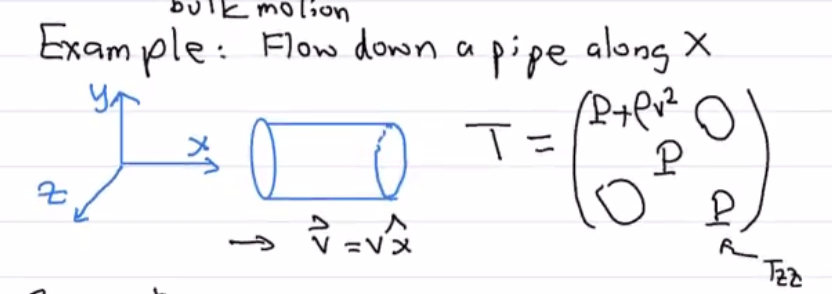 bulk motion
Example: Flow down a pipe along X
y
x
z
T = (P+ρv² 0
P
0 P)
→ v⃗ = vx̂
Tzz